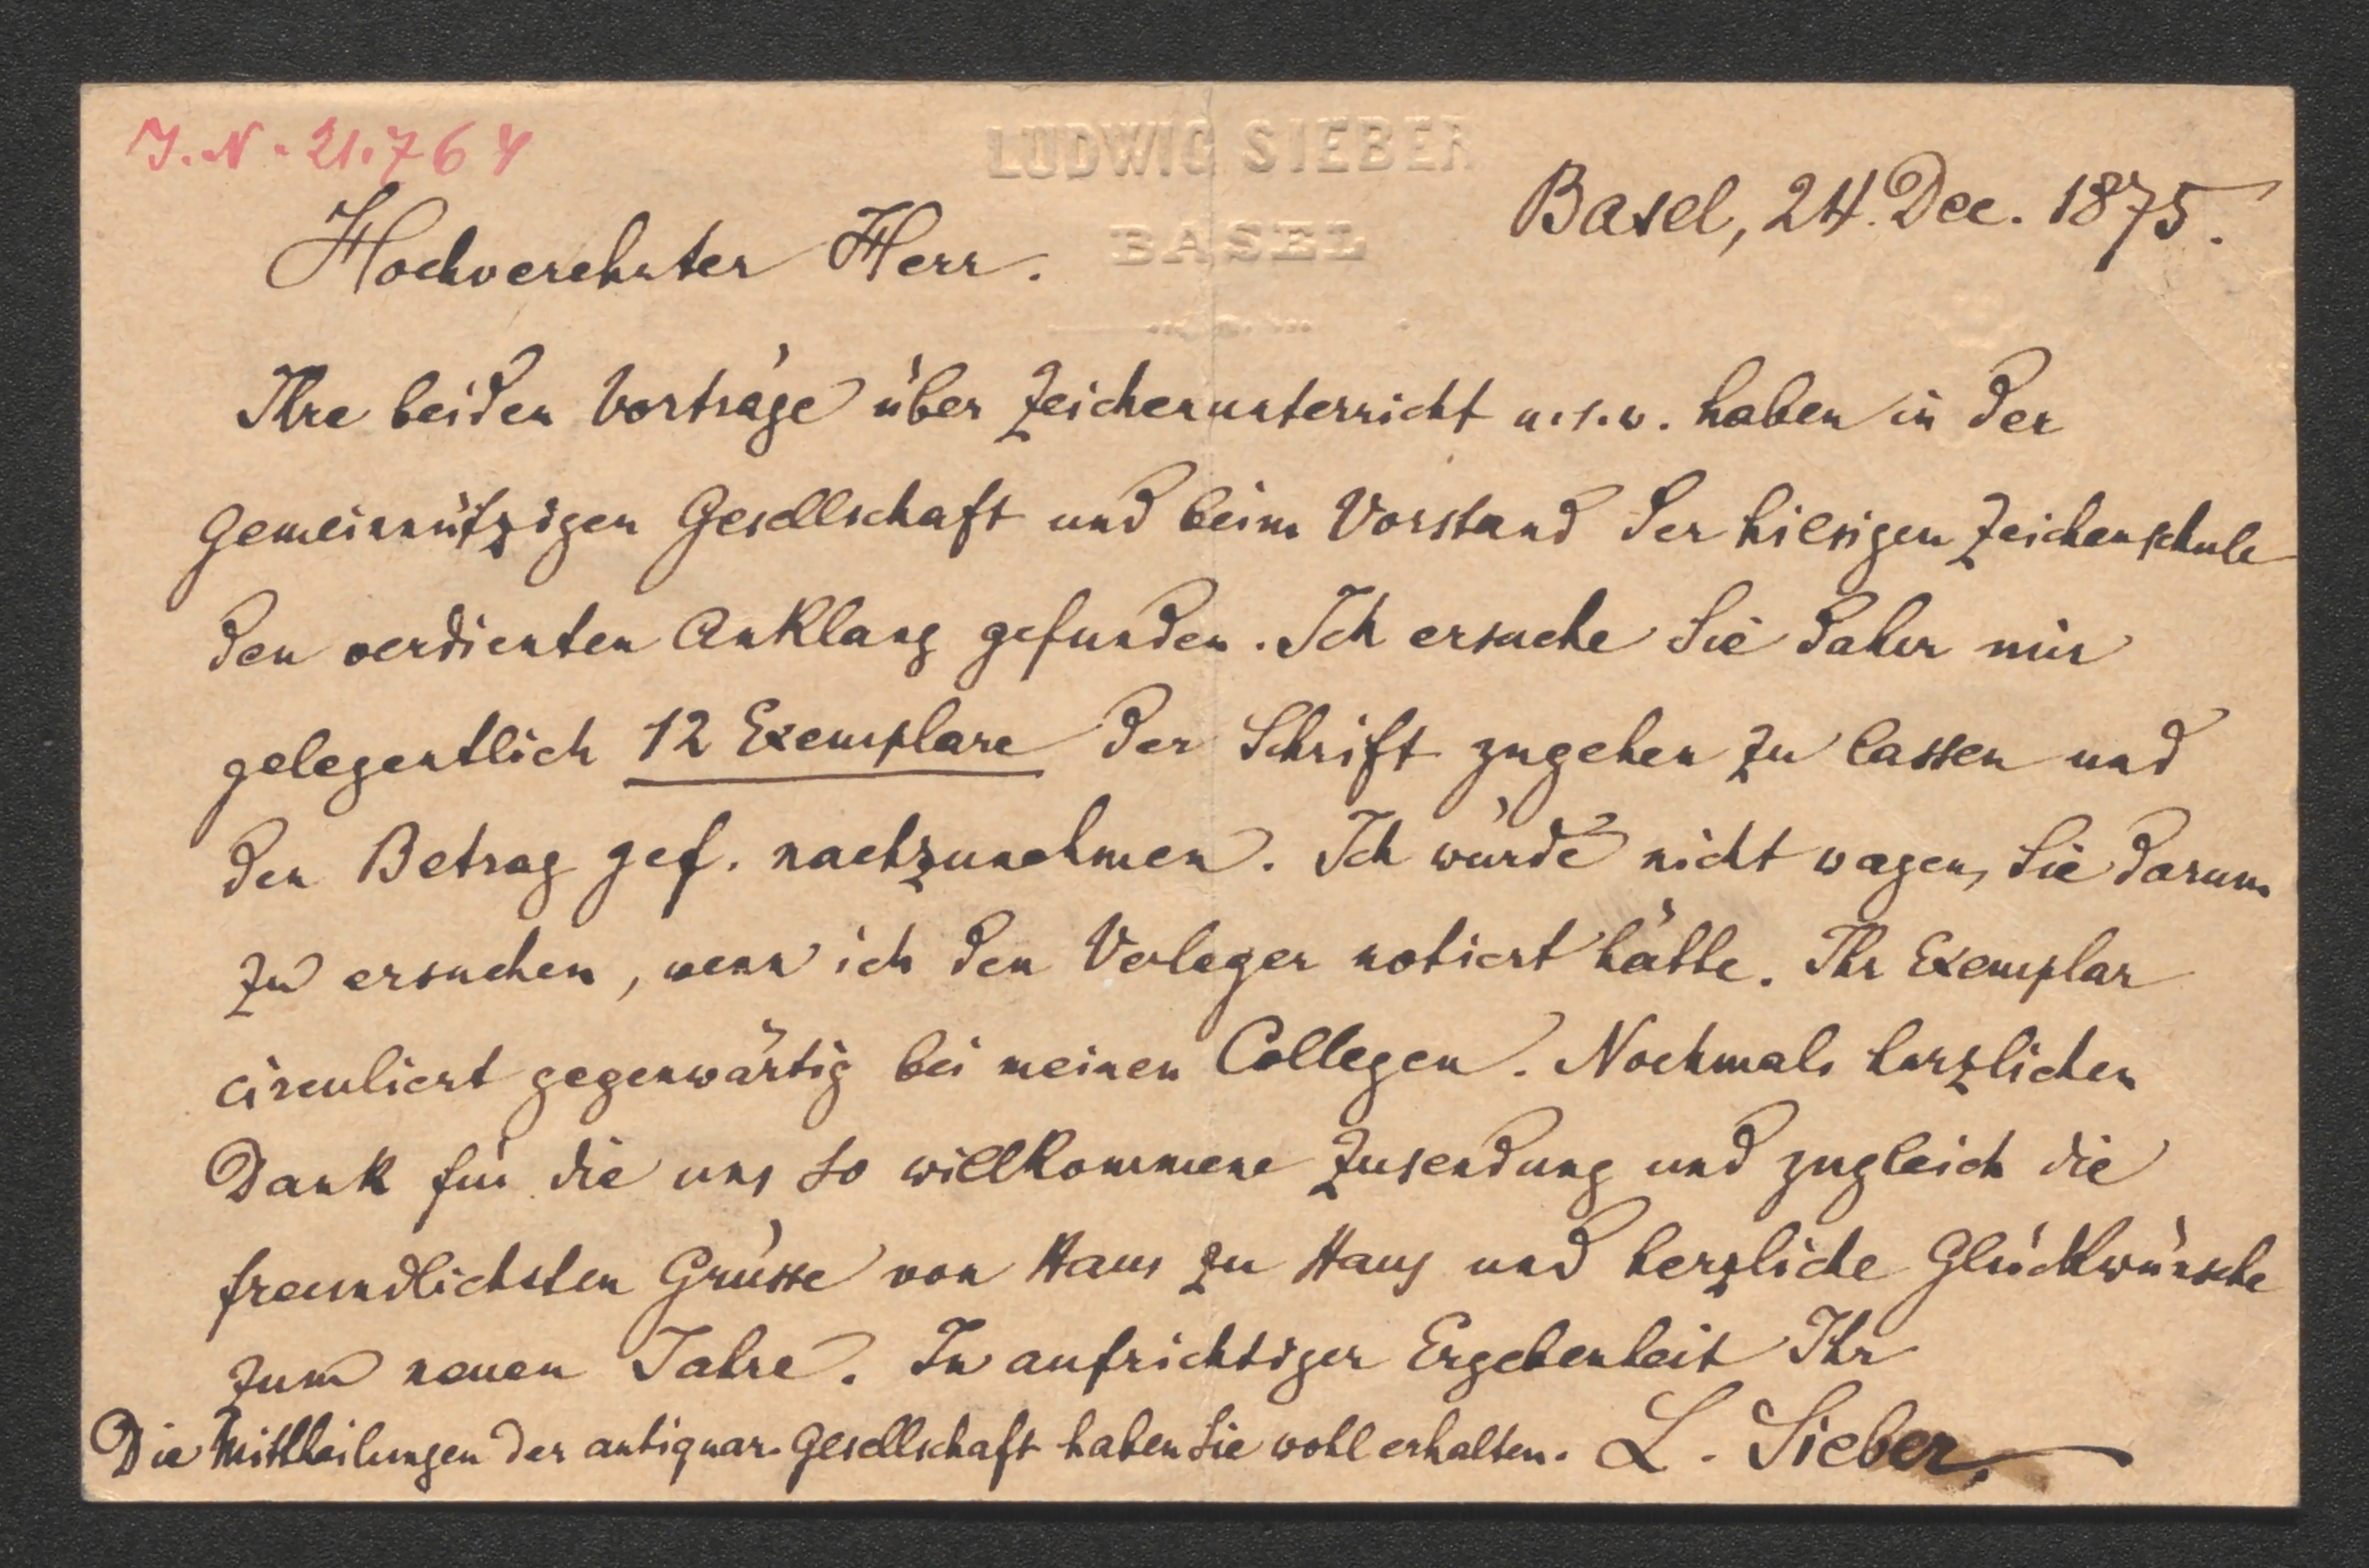 I.N. 21.764
LUDWIG SIEBER
BASEL
Basel, 24. Dec. 1875.
Hochverehrter Herr.
Ihre beiden Vorträge über Zeichenunterricht u.s.w. haben in der
Gemeinnützigen Gesellschaft und beim Vorstand der hiesigen Zeichenschule
den verdienten Anklang gefunden. Ich ersuche Sie daher mir
gelegentlich 12 Exemplare der Schrift zugehen zu lassen und
den Betrag gef. nachzunehmen. Ich würde nicht wagen, Sie darum
zu ersuchen, wenn ich den Verleger notiert hätte. Ihr Exemplar
circuliert gegenwärtig bei meinen Collegen. Nochmals herzlichen
Dank für die uns so willkommene Zusendung und zugleich die
freundlichsten Grüsse von Haus zu Haus und herzliche Glückwünsche
zum neuen Jahre. In aufrichtiger Ergebenheit Ihr
Die Mittheilungen der antiquar. Gesellschaft haben Sie wohl erhalten. L. Sieber.